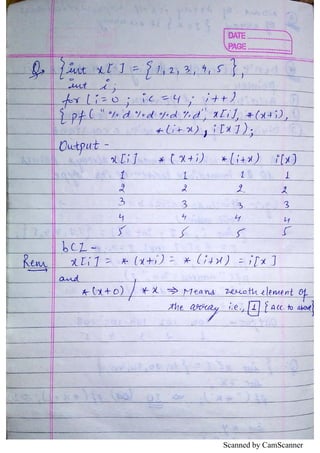 DATE
PAGE
Q. { int x[ ] = { 1, 2, 3, 4, 5 };
int i;
for ( i=0 ; i<=4 ; i++)
{ pf ( "%d %d %d %d", x[i], *(x+i),
*(i+x), i[x]);
Output -
x[i] *(x+i) *(i+x) i[x]
1 1 1 1
2 2 2 2
3 3 3 3
4 4 4 4
5 5 5 5
bCZ -
Rem x[i] = *(x+i) = *(i+x) = i[x]
and
*(x+0) / *x ⇒ Means zeroth element of
the array i.e., 1 { acc to above }
Scanned by CamScanner